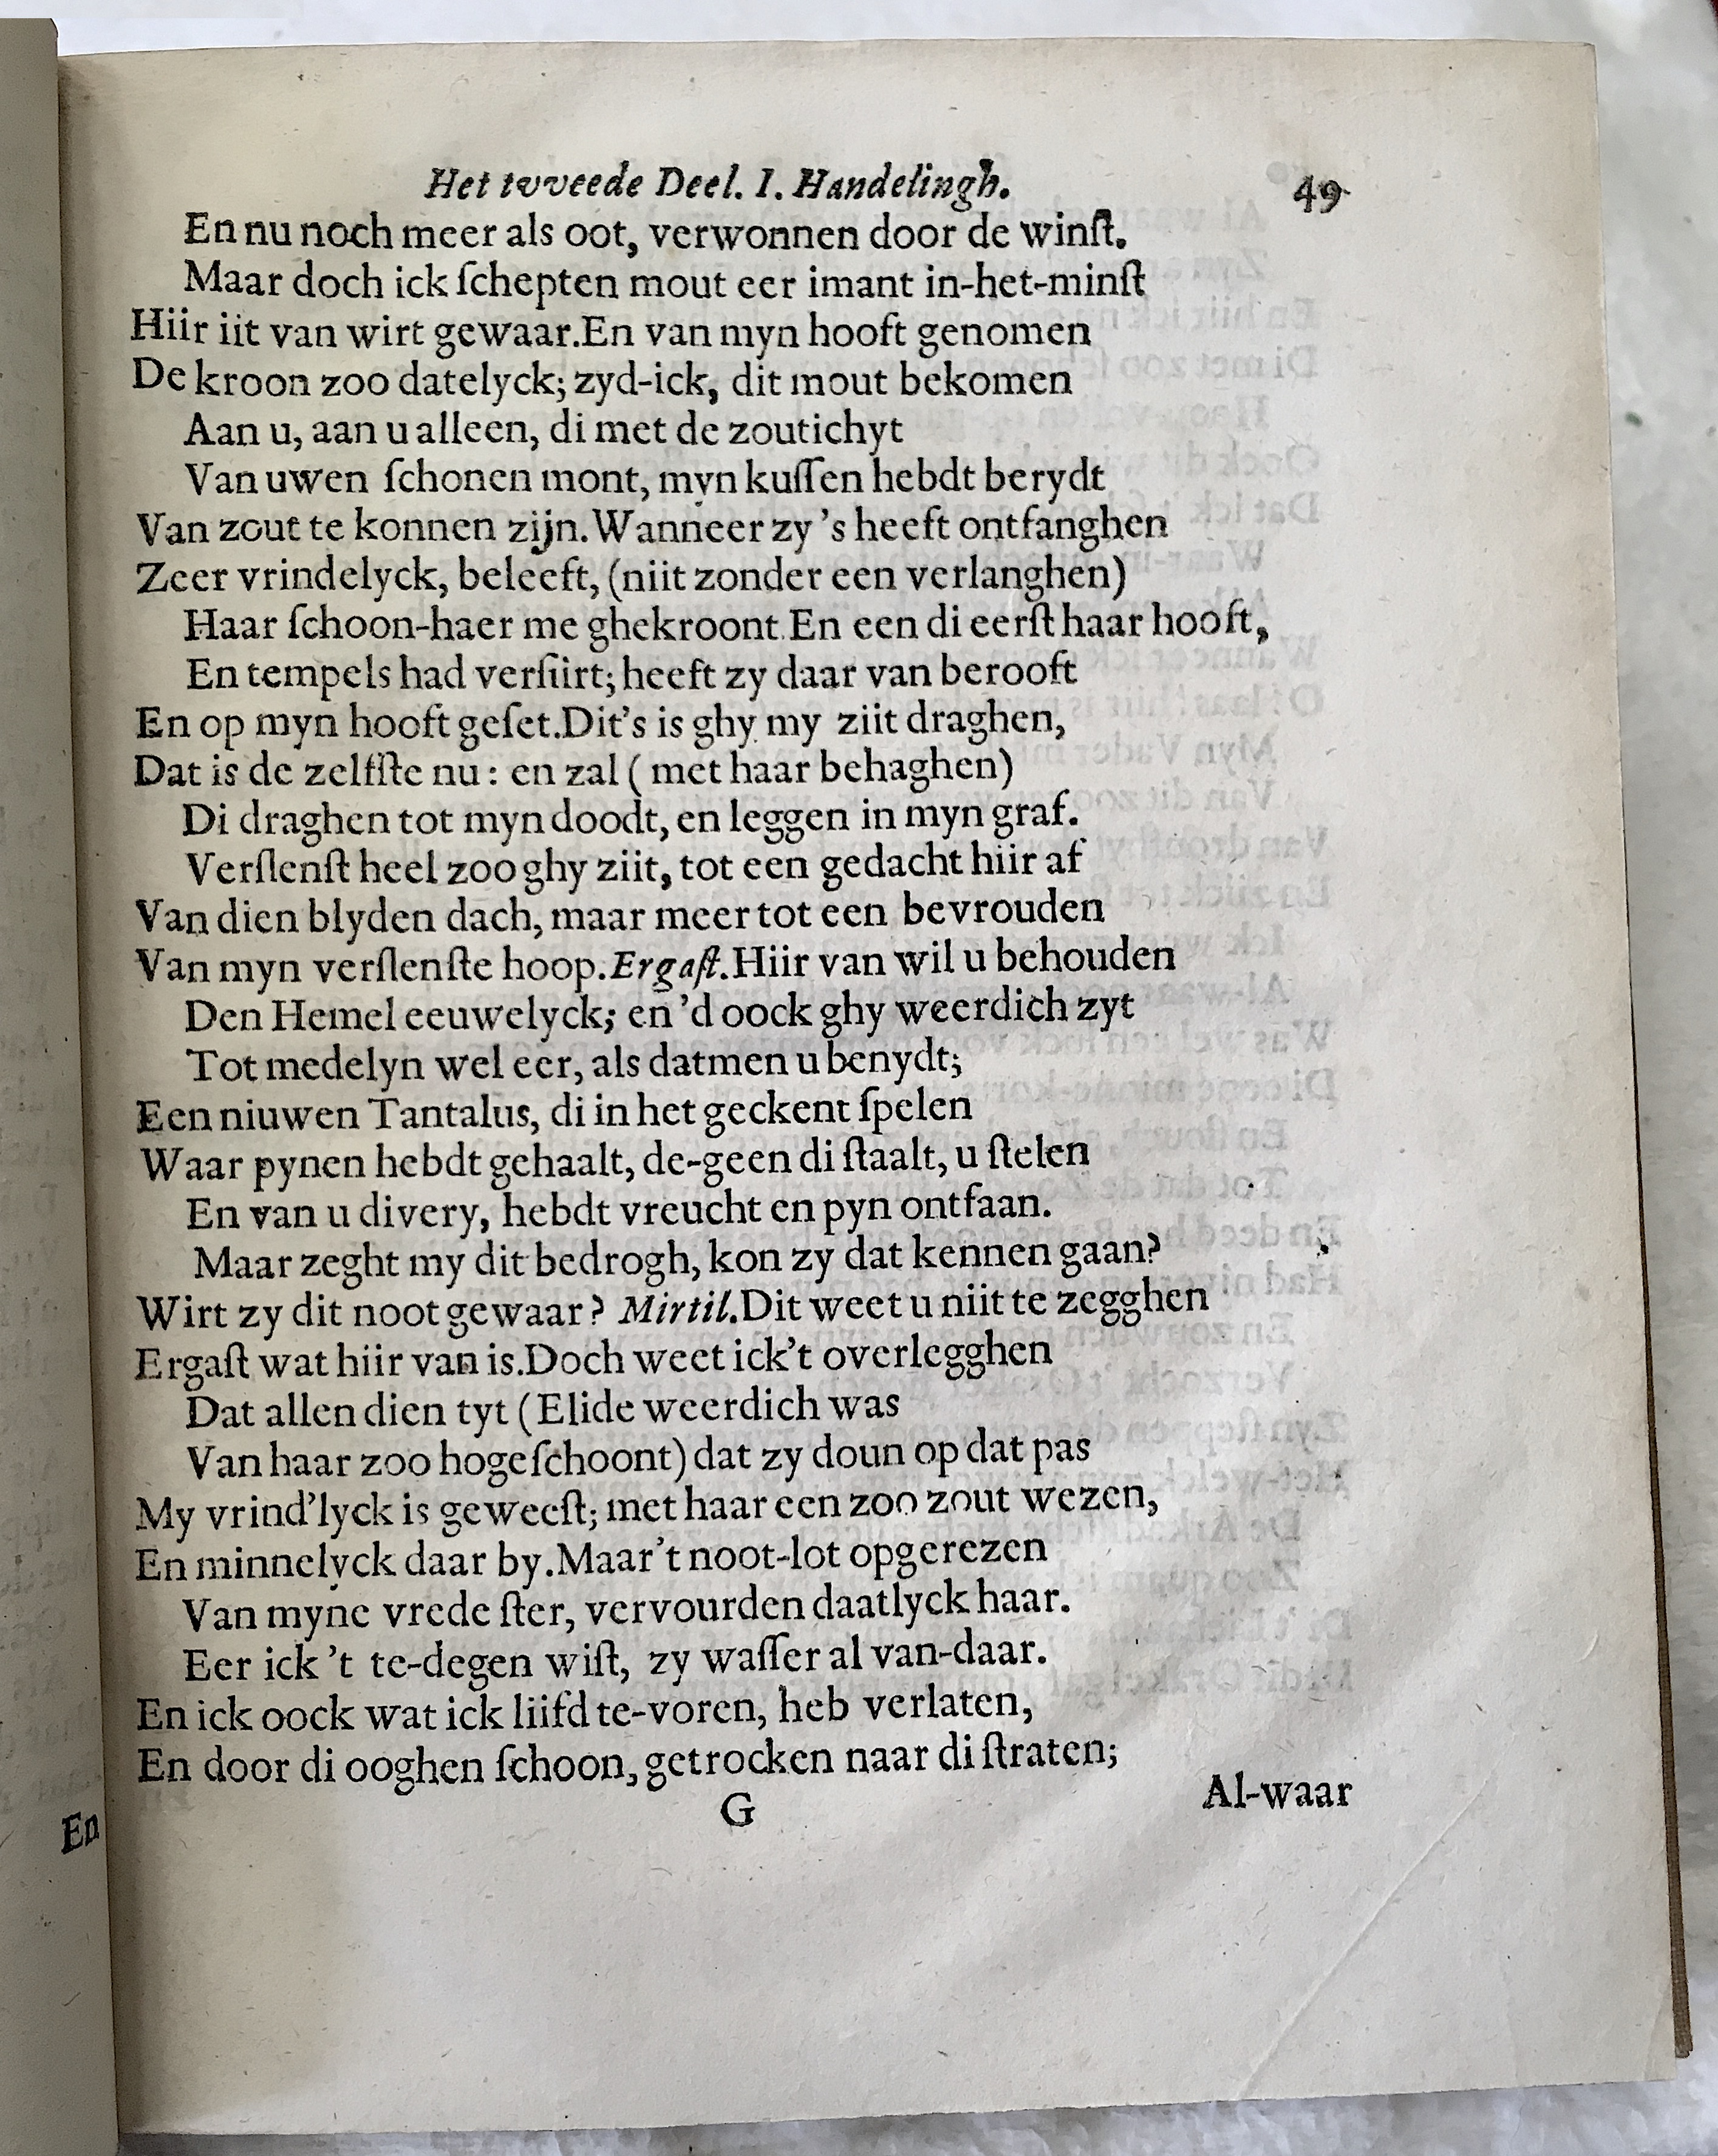 Het tvveede Deel. I. Handelingh. 49
En nu noch meer als oot, verwonnen door de winſt.
Maar doch ick ſchepten mout eer imant in-het-minſt
Hiir iit van wirt gewaar.En van myn hooft genomen
De kroon zoo datelyck; zyd-ick, dit mout bekomen
Aan u, aan u alleen, di met de zoutichyt
Van uwen ſchonen mont, myn kuſſen hebdt berydt
Van zout te konnen zijn.Wanneer zy 's heeft ontfanghen
Zeer vrindelyck, beleeft, (niit zonder een verlanghen)
Haar ſchoon-haer me ghekroont.En een di eerſt haar hooft,
En tempels had verſiirt; heeft zy daar van berooft
En op myn hooft geſet.Dit's is ghy my ziit draghen,
Dat is de zelfſte nu: en zal ( met haar behaghen)
Di draghen tot myn doodt, en leggen in myn graf.
Verſlenſt heel zoo ghy ziit, tot een gedacht hiir af
Van dien blyden dach, maar meer tot een bevrouden
Van myn verſlenſte hoop.Ergaſt.Hiir van wil u behouden
Den Hemel eeuwelyck; en 'd oock ghy weerdich zyt
Tot medelyn wel eer, als datmen u benydt;
Een niuwen Tantalus, di in het geckent ſpelen
Waar pynen hebdt gehaalt, de-geen di ſtaalt, u ſtelen
En van u divery, hebdt vreucht en pyn ontfaan.
Maar zeght my dit bedrogh, kon zy dat kennen gaan?
Wirt zy dit noot gewaar? Mirtil.Dit weet u niit te zegghen
Ergaſt wat hiir van is.Doch weet ick't overlegghen
Dat allen dien tyt (Elide weerdich was
Van haar zoo hoge ſchoont) dat zy doun op dat pas
My vrind'lyck is geweeſt; met haar een zoo zout wezen,
En minnelyck daar by.Maar't noot-lot opgerezen
Van myne vrede ſter, vervourden daatlyck haar.
Eer ick 't te-degen wiſt, zy waſſer al van-daar.
En ick oock wat ick liifd te-voren, heb verlaten,
En door di ooghen ſchoon, getrocken naar di ſtraten;
G Al-waar
En